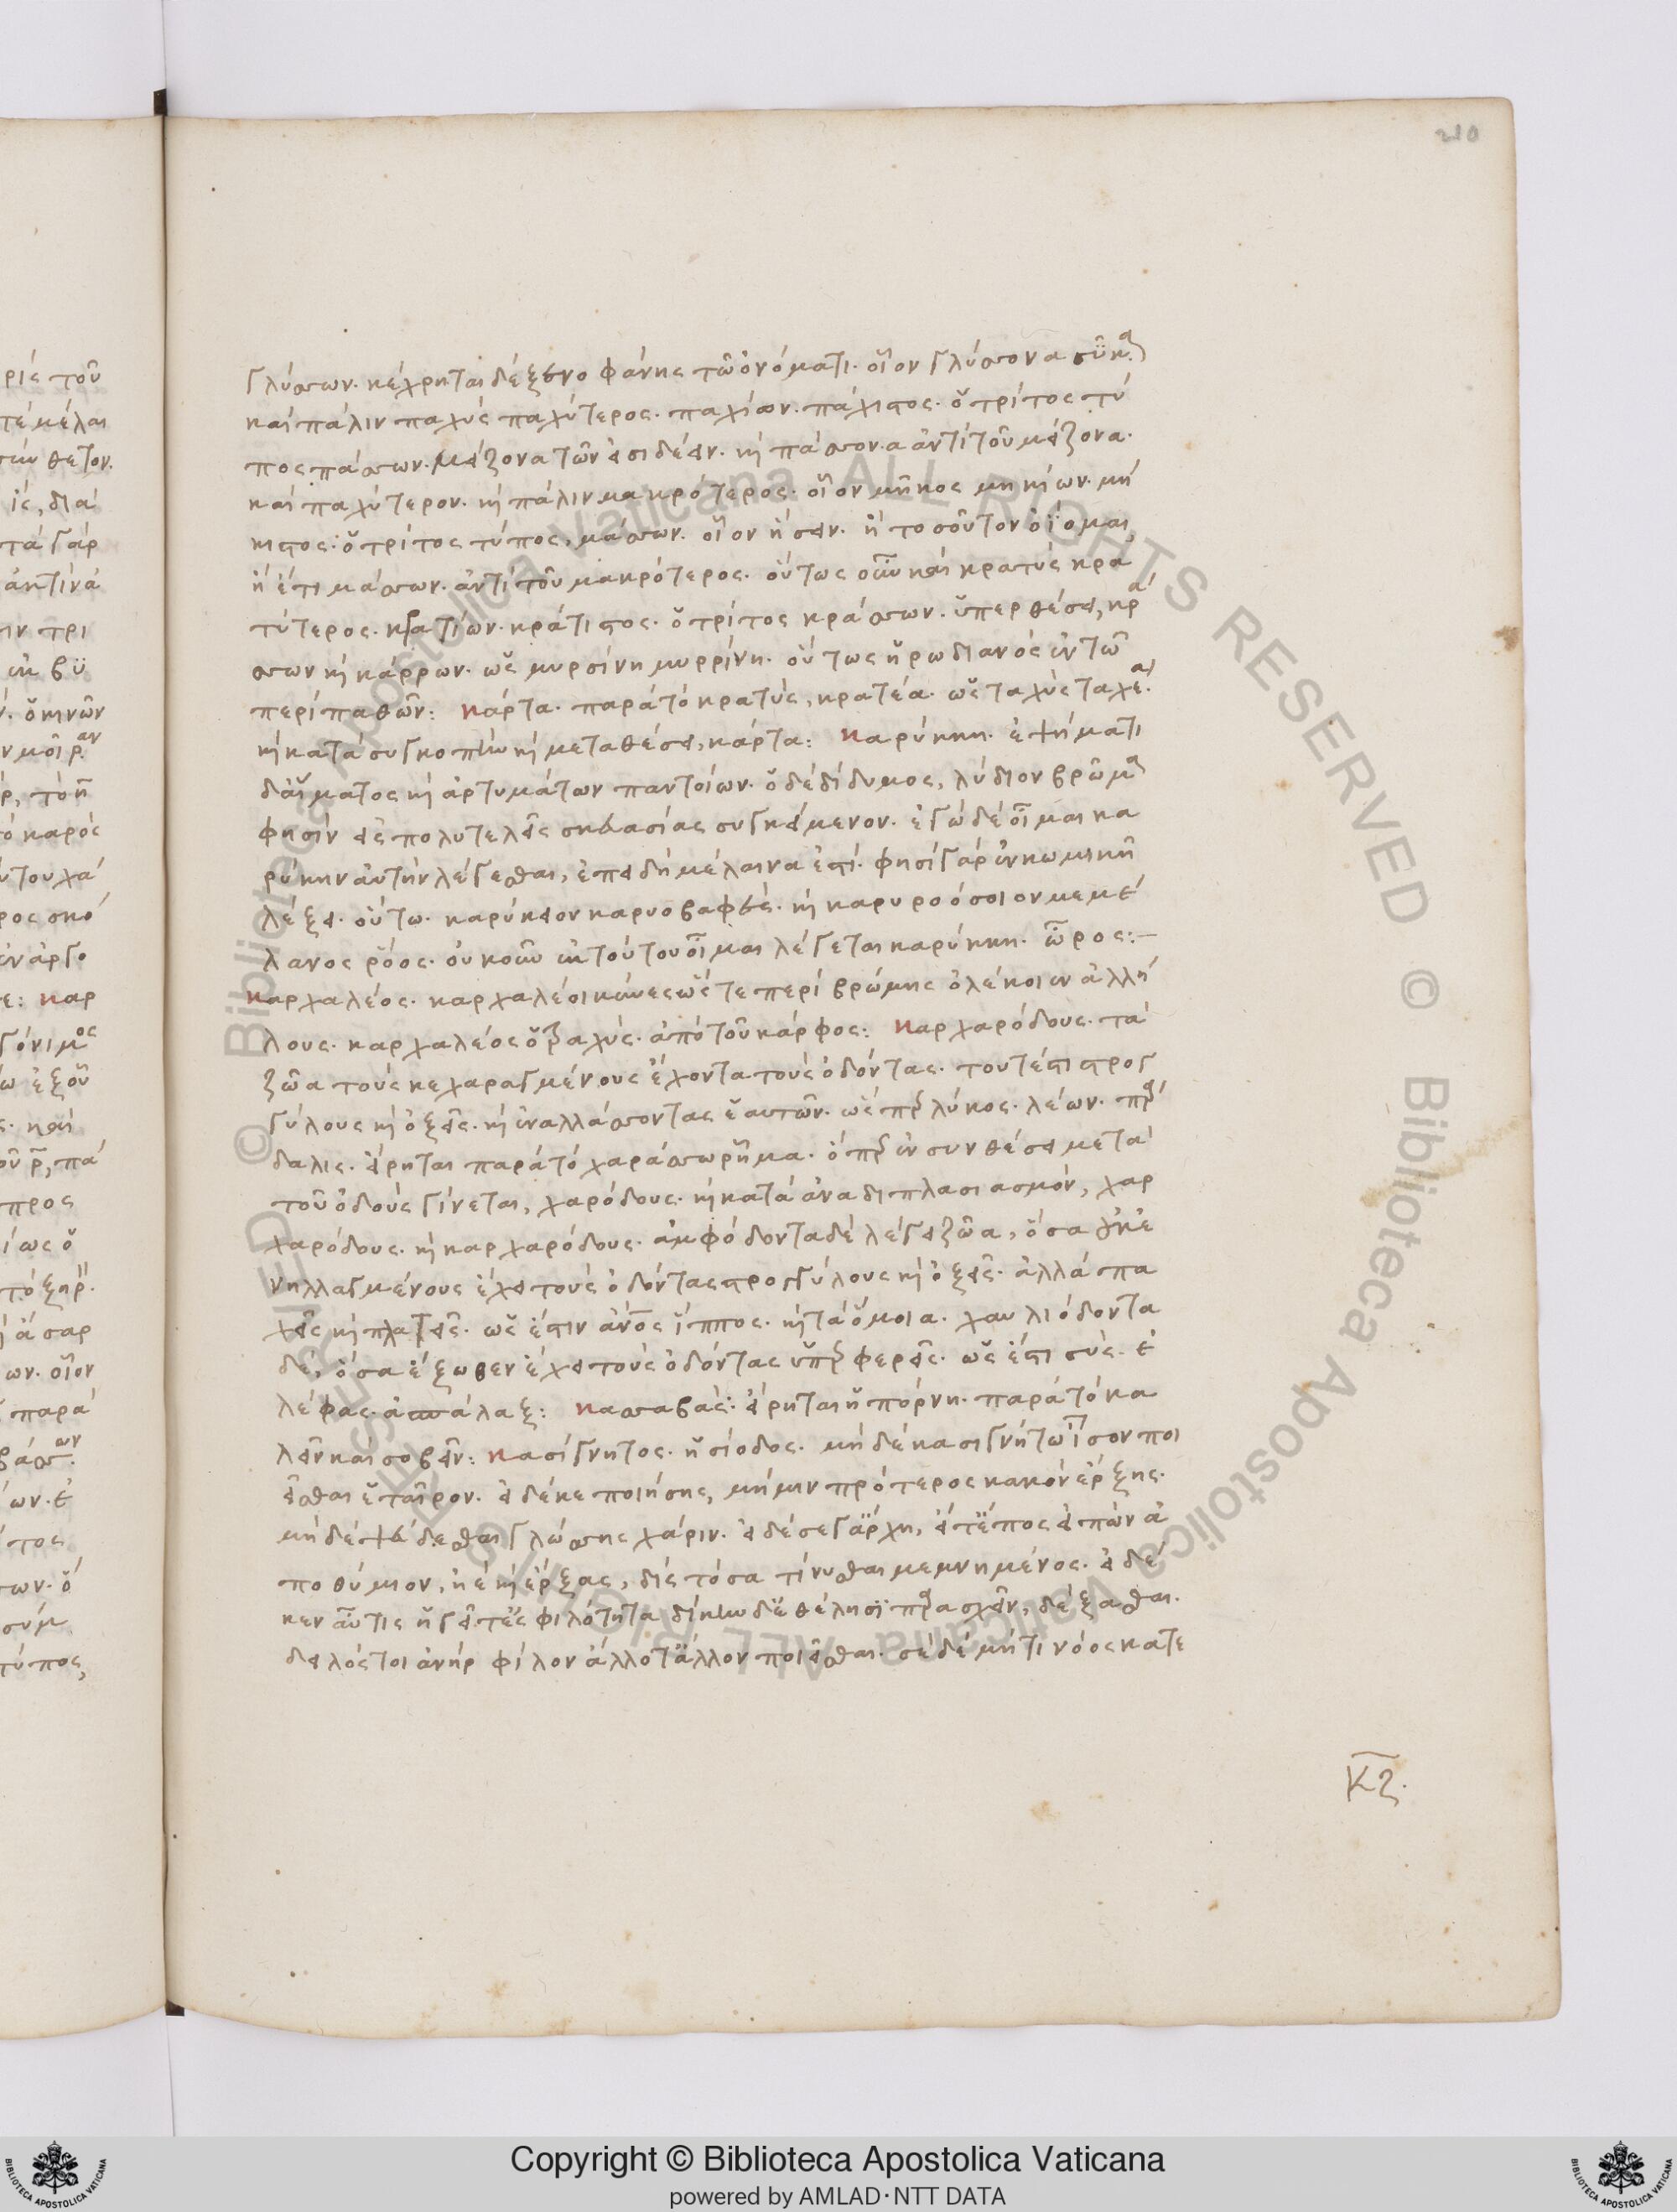 210
γλύσσων. κέχρηται δὲ ξενοφάνης τῶ ὀνόματι. οἷον γλύσσονα σῦκα
καὶ πάλιν παχὺς παχύτερος. παχίων. πάχιστος. ὁ τρίτος τύ
πος πάσσων. μείζονα τῶν εἰσιδέειν. καὶ πάσσονα ἀντὶ τοῦ μείζονα.
καὶ παχύτερον. καὶ πάλιν μακρότερος. οἷον μῆκος μηκίων. μή
κιστος. ὁ τρίτος τύπος, μάσσων. οἷον ἦσαν. ἢ τοσοῦτον ὀΐομαι
ἢ ἔτι μάσσων. ἀντὶ τοῦ μακρότερος. οὕτως οὖν καὶ κρατὺς κρα
τύτερος. κρατίων. κράτιστος. ὁ τρίτος κράσσων. ὑπερθέσει, κρά
σσων καὶ κάρρων. ὡς μυρσίνη μυρρίνη. οὕτως ἡρωδιανὸς ἐν τῶ
περὶ παθῶν: κάρτα. παρὰ τὸ κρατύς, κρατέα. ὡς ταχὺς ταχέα.
καὶ κατὰ συγκοπὴν καὶ μεταθέσει, κάρτα: καρύκκη. ἑψήματι
δἰαἵματος καὶ ἀρτυμάτων παντοίων. ὁ δὲ δίδυμος, λύδιον βρῶμα
φησὶν εἰς πολυτελεῖς σκευασίας συγκείμενον. ἐγὼ δὲ οἶμαι κα
ρύκην αὐτὴν λέγεσθαι, ἐπειδὴ μέλαινα ἐστί. φησὶ γὰρ ἐν κωμικῆ
λέξει. οὕτω. καρύκειον καρυοβαφές. καὶ καρυρόοσοιον μεμέ
λανος ῥόος. οὐκοῦν ἐκ τούτου οἶμαι λέγεται καρύκκη. ὦρος:–
καρχαλέος. καρχαλέοι κύνες ὥς τε περὶ βρώμης ὀλέκοιεν ἀλλή
λους. καρχαλέος ὁ τραχύς. ἀπὸ τοῦ κάρφος: καρχαρόδους. τὰ
ζῶα τοὺς κεχαραγμένους ἔχοντα τοὺς ὀδόντας. τουτέστι στρογ
γύλους καὶ ὀξεῖς. καὶ ἐναλλάσσοντας ἑαυτῶν. ὥσπερ λύκος. λέων. πάρ
δαλις. εἴρηται παρὰ τὸ χαράσσω ῥῆμα. ὅπερ ἐν συνθέσει μετὰ
τοῦ ὀδοὺς γίνεται, χαρόδους. καὶ κατὰ ἀναδιπλασιασμόν, χαρ
χαρόδους. καὶ καρχαρόδους. ἀμφόδοντα δὲ λέγει ζῶα, ὅσα οὐκ ἐ
νηλλαγμένους ἔχει τοὺς ὀδόντας στρογγύλους καὶ ὀξεῖς. ἀλλὰ σπα
χεῖς καὶ πλατεῖς. ὡς ἔστιν ἄνος ἵππος. καὶ τὰ ὅμοια. χαυλιόδοντα
δέ, ὅσα ἔξωθεν ἔχει τοὺς ὀδόντας ὑπερφερεῖς. ὡς ἔστι σύς. ἐ
λέφας. ἀσπάλαξ: κασσαβάς. εἴρηται ἡ πόρνη. παρὰ τὸ κα
λεῖν καὶ σοβεῖν: κασίγνητος. ἡσίοδος. μὴ δὲ κασιγνήτω ἶσον ποι
εῖσθαι ἑταῖρον. εἰ δέ κε ποιήσης, μήμιν πρότερος κακὸν ἔρξης.
μὴ δὲ ψεύδεσθαι γλώσσης χάριν. εἰ δέ σε γἄρχη, εἴ τἔπος εἰπὼν ἀ
ποθύμιον, ἠὲ καὶ ἔρξας, δὶς τόσα τίνυσθαι μεμνημένος. εἰ δέ
κεν αὖτις ἡγεῖτ ἐς φιλότητα δίκην δ ἐθέλησι παρασχεῖν, δέξασθαι.
δειλός τοι ἀνὴρ φίλον ἄλλοτἄλλον ποιεῖσθαι. σὲ δὲ μήτι νόος κατε
κζ.
Copyright © Biblioteca Apostolica Vaticana
powered by AMLAD·NTT DATA